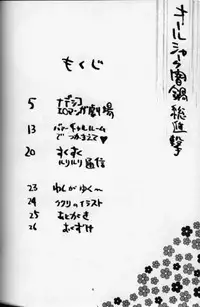 オールジャンク闇鍋総進撃
もくじ
5 ナデシコ
エロマンガ劇場
13 バーチャルルーム
でつかまえて♥
20 すくすく
ルリルリ通信
23 わしがゆく〜
24 うクリのイラスト
25 あとがき
26 おくずけ